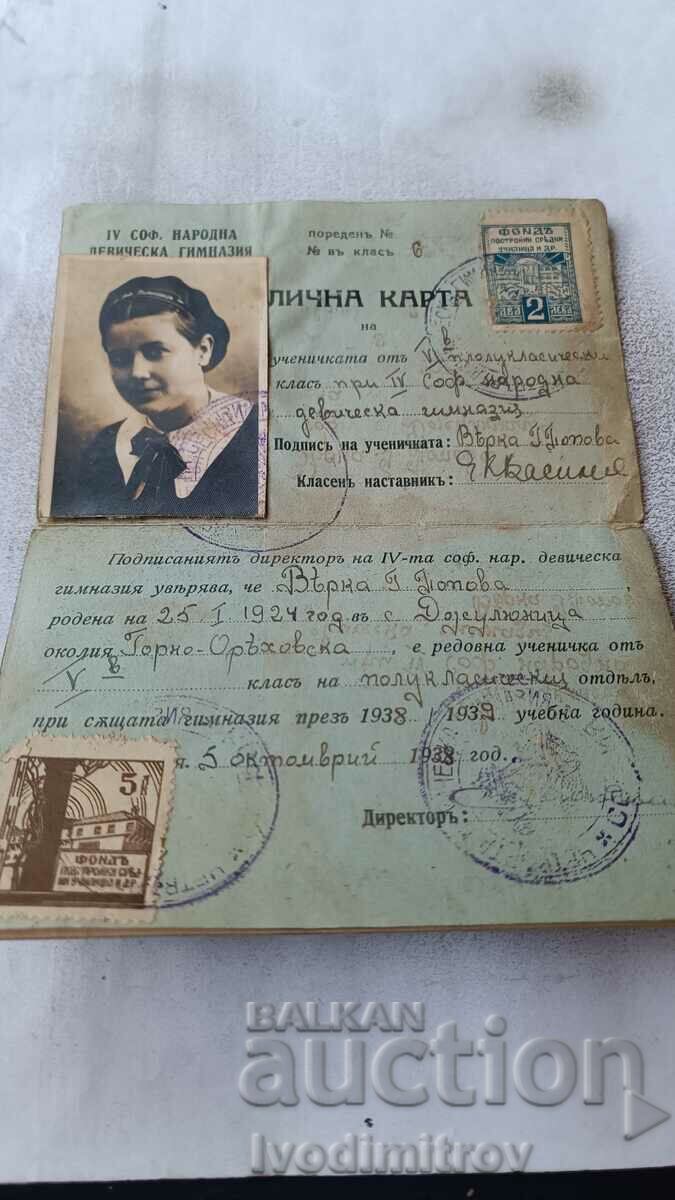 IV СОФ. НАРОДНА
ДЕВИЧЕСКА ГИМНАЗИЯ
пореденъ №
№ въ класъ 6
ЛИЧНА КАРТА
на
ученичката отъ V в полукласически
класъ при IV Соф. народна
девическа гимназия
Подпись на ученичката: Вѣрка Г. Попова
Класенъ наставникъ:
ФОНДЪ
ПОСТРОЙКИ СРѢДНИ
УЧИЛИЩА И ДР.
ДВА 2 ЛЕВА
Подписаниятъ директоръ на IV-та соф. нар. девическа
гимназия увѣрява, че Вѣрка Г. Попова
родена на 25 I 1924 год въ с Джулюница
околия Горно-Орѣховска, е редовна ученичка отъ
V в класъ на полукласически отдѣлъ,
при сѫщата гимназия презъ 1938 / 1939 учебна година.
я. 5 октомврий 1938 год.
Директоръ:
5
ФОНДЪ
ПОСТРОЙКИ СРѢД
НИ УЧИЛИЩА И ДР.
BALKAN
auction
Ivodimitrov